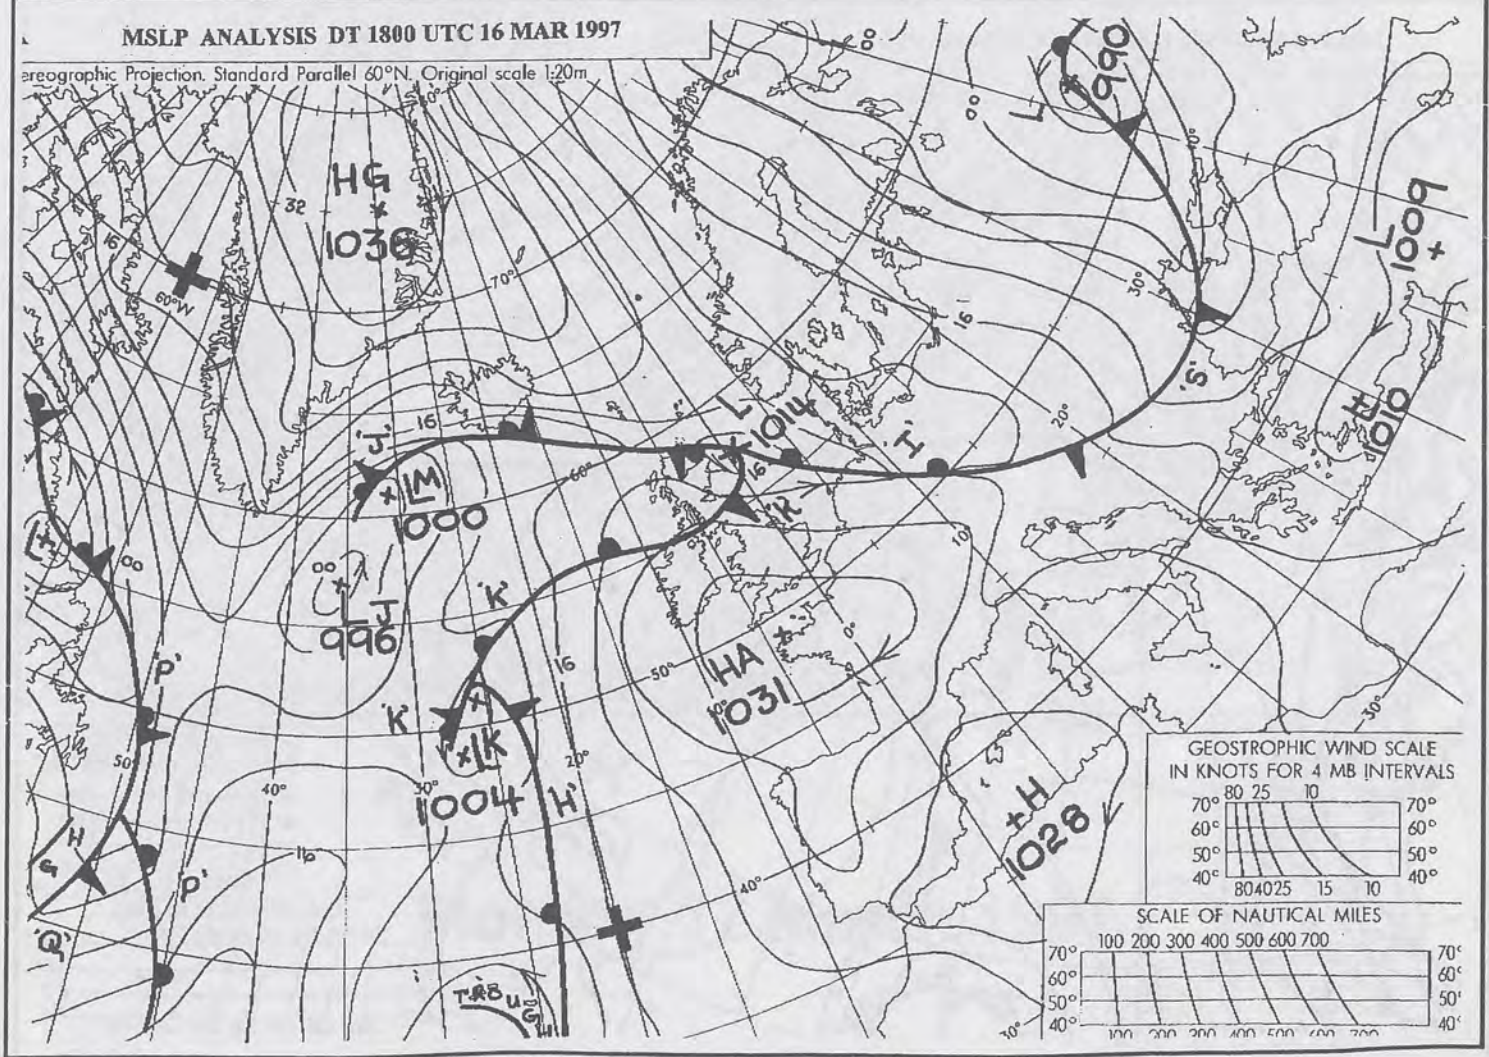 MSLP ANALYSIS DT 1800 UTC 16 MAR 1997
ereographic Projection. Standard Parallel 60°N. Original scale 1:20m
00
990
00
L
HG
32
1036
16
60°W
70°
L
1009
30°
16
'S'
H
1010
20°
'J'
16
L
1014
'I'
16
60°
LM
1000
'R'
10
00
00
L J
996
'K'
'P'
16
50°
0°
HA
10°
1031
'K'
LK
1004
20°
30°
40°
50°
'H'
30°
H
G
'P'
16
40°
+H
1028
'Q'
GEOSTROPHIC WIND SCALE
IN KNOTS FOR 4 MB INTERVALS
80 25 10
70° 70°
60° 60°
50° 50°
40° 40°
80 40 25 15 10
SCALE OF NAUTICAL MILES
100 200 300 400 500 600 700
70° 70°
60° 60°
50° 50°
40° 40°
100 200 300 400 500 600 700
30°